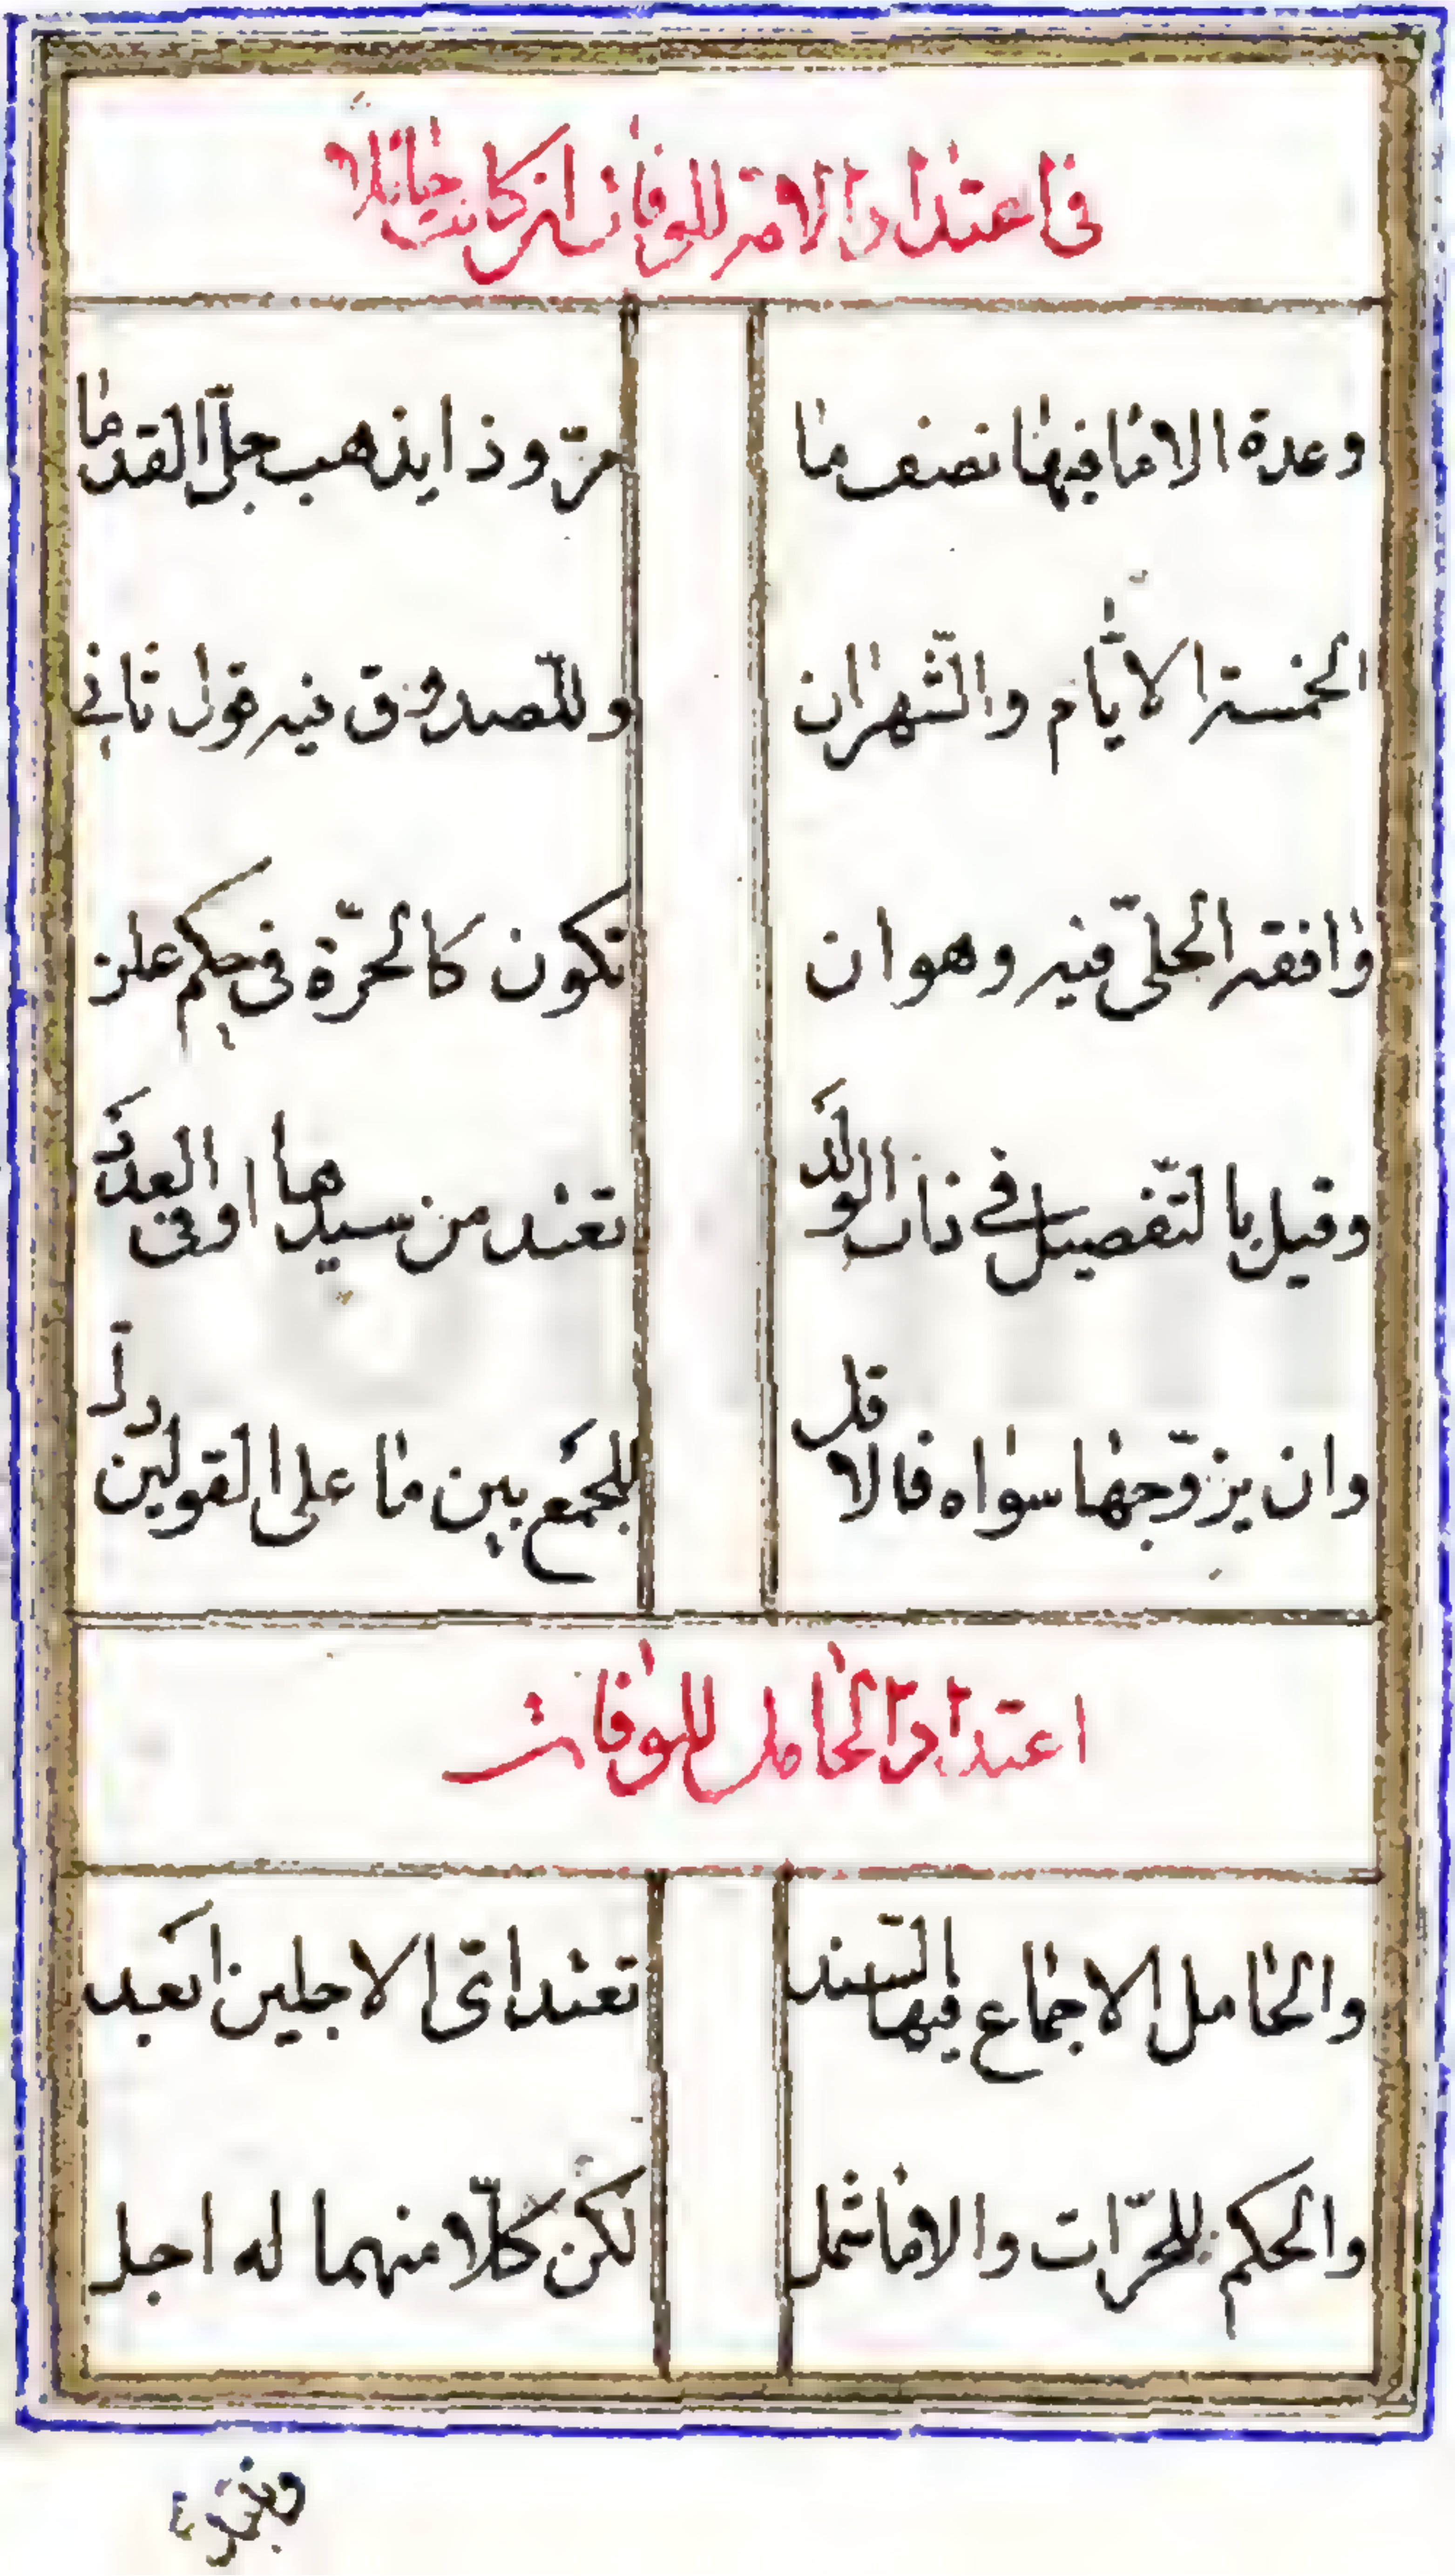 فى اعتداد الامة للوفات ان كانت حايلا
وعدة الاما فيها نصف ما مرّ وذا يذهب جلّ القدما
الخمسة الايّام والشّهران وللصّدوق فيه قول ثانى
وافقه الحلىّ فيه وهو ان تكون كالحرّة فى حكم علن
وقيل بالتّفصيل فى ذات الولد تعتد من سيدها اوفى العدد
وان يزوّجها سواه فالاقل للجمع بين ما على القولين دل
اعتداد الحامل للوفات
والحامل الاجماع فيها بالسّند تعتد اىّ الاجلين ابعد
والحكم للحرّات والاما شمل لكن كلّا منهما له اجل